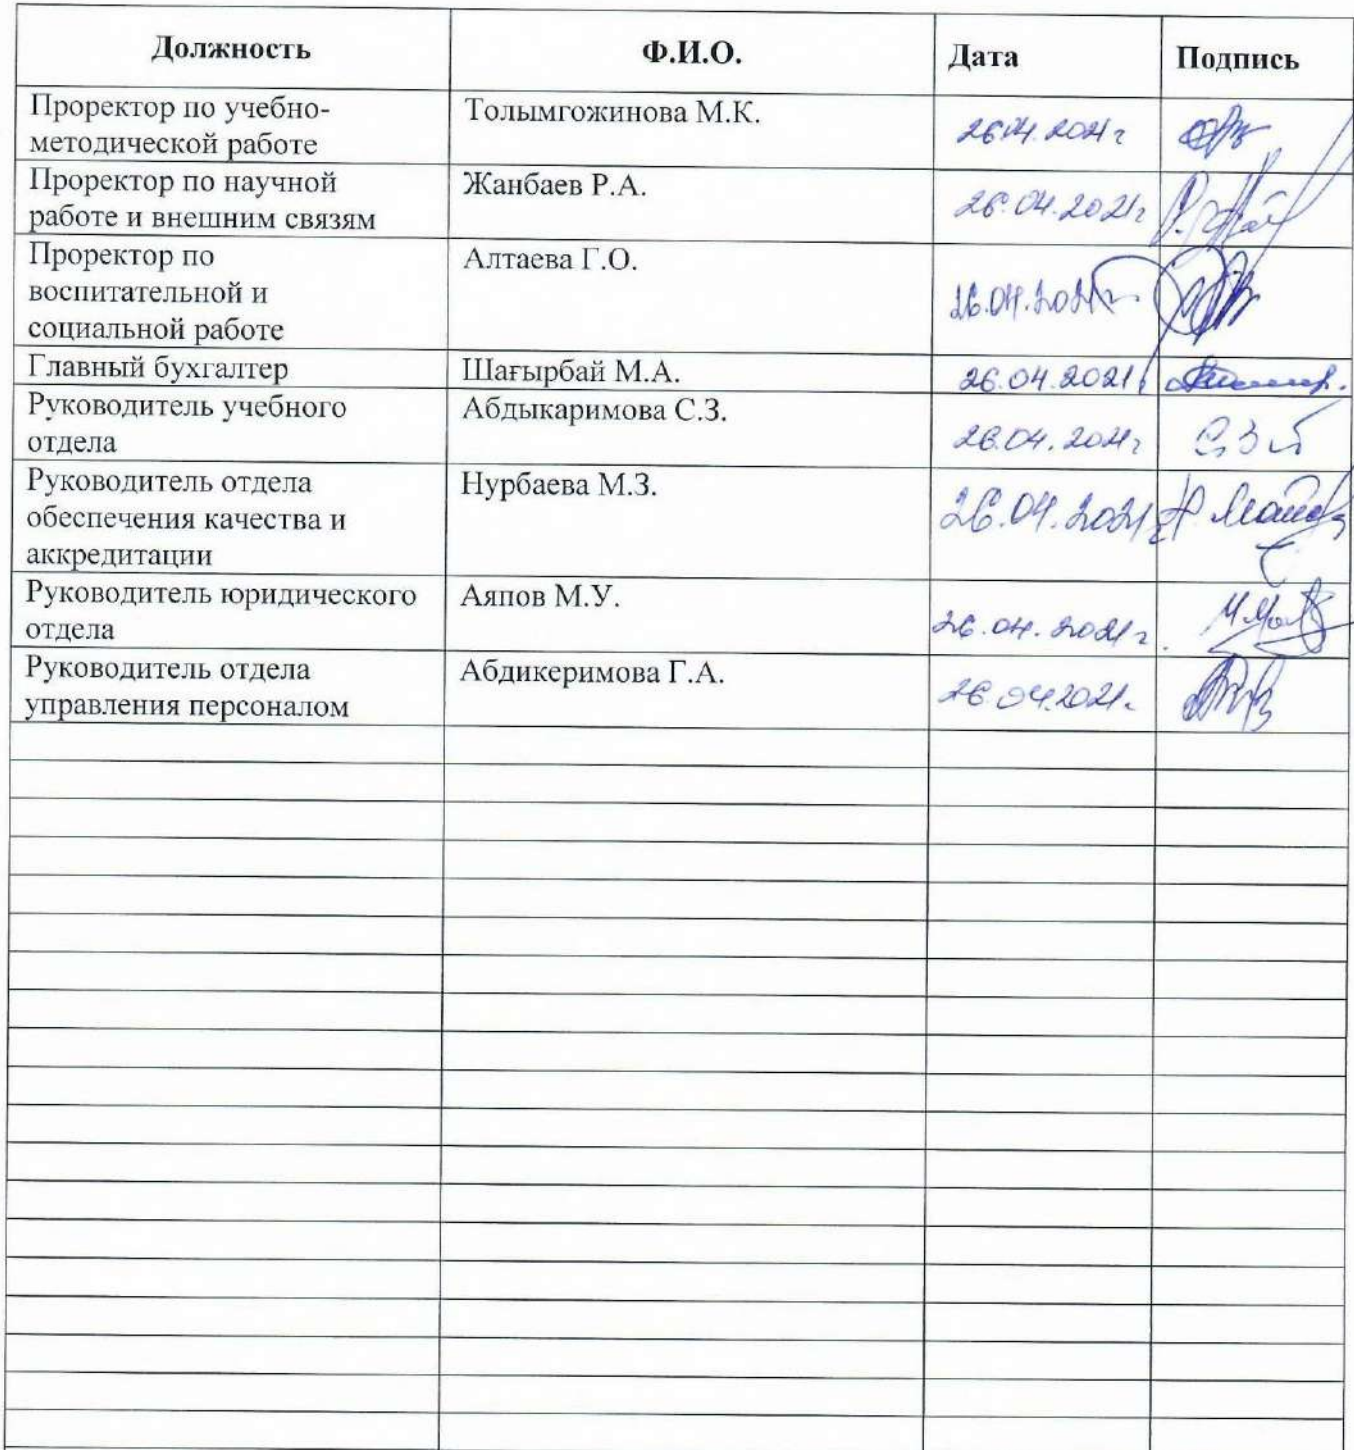 Должность Ф.И.О. Дата Подпись
Проректор по учебно-
методической работе
Толымгожинова М.К.
26.04.2021г
Проректор по научной
работе и внешним связям
Жанбаев Р.А.
26.04.2021г
Проректор по
воспитательной и
социальной работе
Алтаева Г.О.
26.04.2021г
Главный бухгалтер
Шағырбай М.А.
26.04.2021
Руководитель учебного
отдела
Абдыкаримова С.З.
26.04.2021г
Руководитель отдела
обеспечения качества и
аккредитации
Нурбаева М.З.
26.04.2021г
Руководитель юридического
отдела
Аяпов М.У.
26.04.2021г.
Руководитель отдела
управления персоналом
Абдикеримова Г.А.
26.04.2021г.